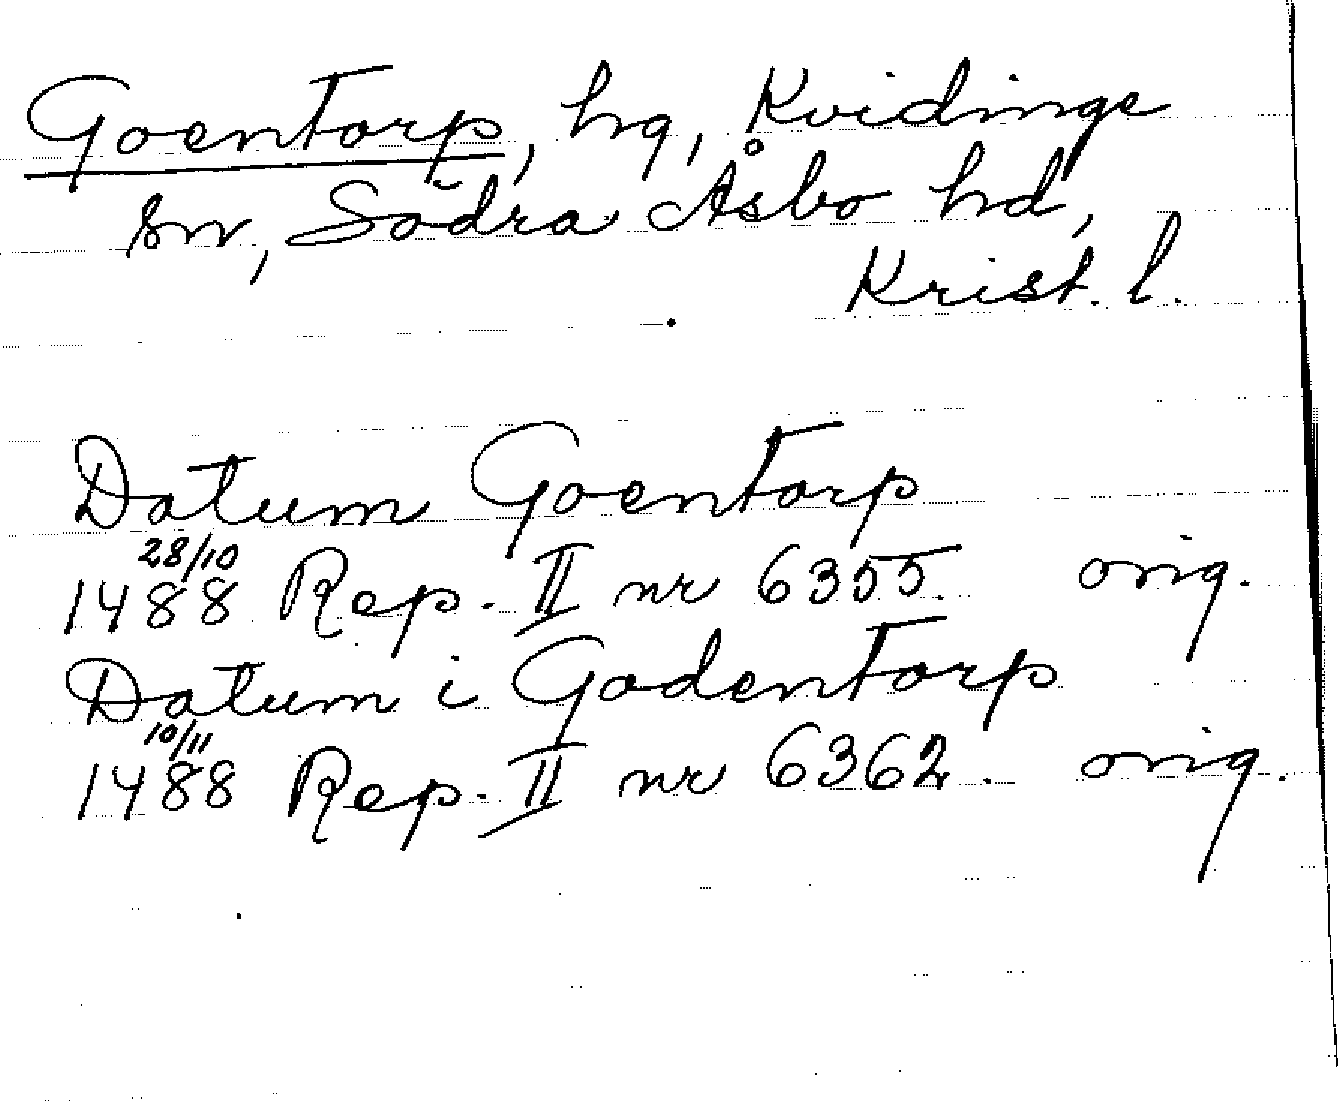 Goentorp, hg, Kvidinge
sn, Södra Åsbo hd,
Krist. l.
Datum Goentorp
28/10
1488 Rep. II nr 6355. orig.
Datum i Godentorp
10/11
1488 Rep. II nr 6362. orig.